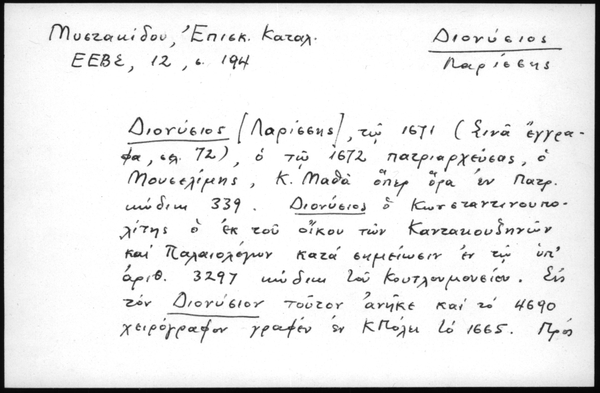 Μυστακίδου, Ἐπισκ. Καταλ.
ΕΕΒΣ, 12, σ. 194
Διονύσιος
Λαρίσσης
Διονύσιος [Λαρίσσης], τῷ 1671 (Σινᾶ ἔγγρα-
φα, σελ. 72), ὁ τῷ 1672 πατριαρχεύσας, ὁ
Μουσελίμης, Κ. Μαθᾶ ὅπερ ὅρα ἐν Πατρ.
κώδικι 339. Διονύσιος ὁ Κωνσταντινουπο-
λίτης ὁ ἐκ τοῦ οἴκου τῶν Καντακουζηνῶν
καί Παλαιολόγων κατά σημείωσιν ἐν τῷ ὑπ'
ἀριθ. 3297 κώδικι τοῦ Κουτλουμουσίου. Εἰς
τόν Διονύσιον τοῦτον ἀνῆκε καί τό 4690
χειρόγραφον γραφέν ἐν ΚΠόλει τό 1665. Πρός